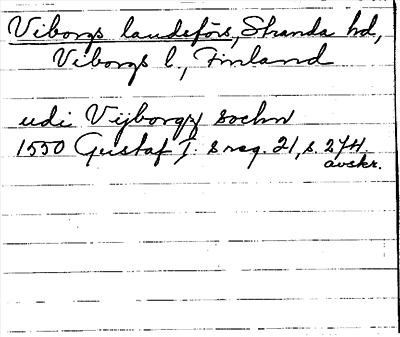 Viborgs landsförs, Stranda hd,
Viborgs l., Finland
udi Vijborgz sochn
1550 Gustaf I. s reg. 21, s. 274.
avskr.